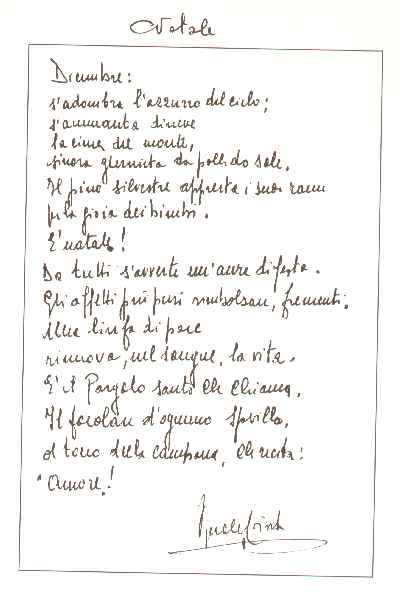 Natale
Dicembre:
s'adombra l'azzurro del cielo;
s'ammanta di neve
la cima del monte,
sinora guernita da pallido sole.
Il pino silvestre appresta i suoi rami
per la gioia dei bimbi.
E' natale!
Da tutti s'avverte un'aura di festa.
Gli affetti più puri, frementi.
Una linfa di pace
rinnova, nel sangue, la vita.
E' il Pargolo santo che chiama.
Il focolare d'ognuno sfavilla,
al tocco della campana, che recita:
"Amore!